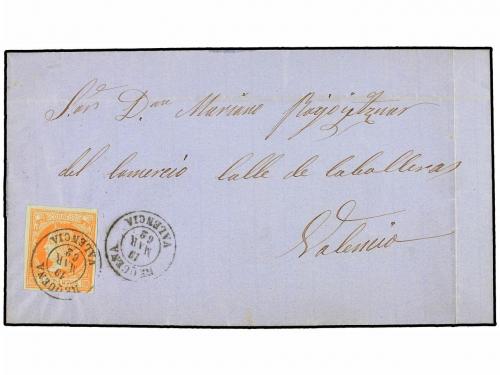 Sor. Dn. Mariano
del Comercio Calle de Caballeros
Valencia
REQUENA
10
MAR
62
VALENCIA
REQUENA
10
MAR
62
VALENCIA